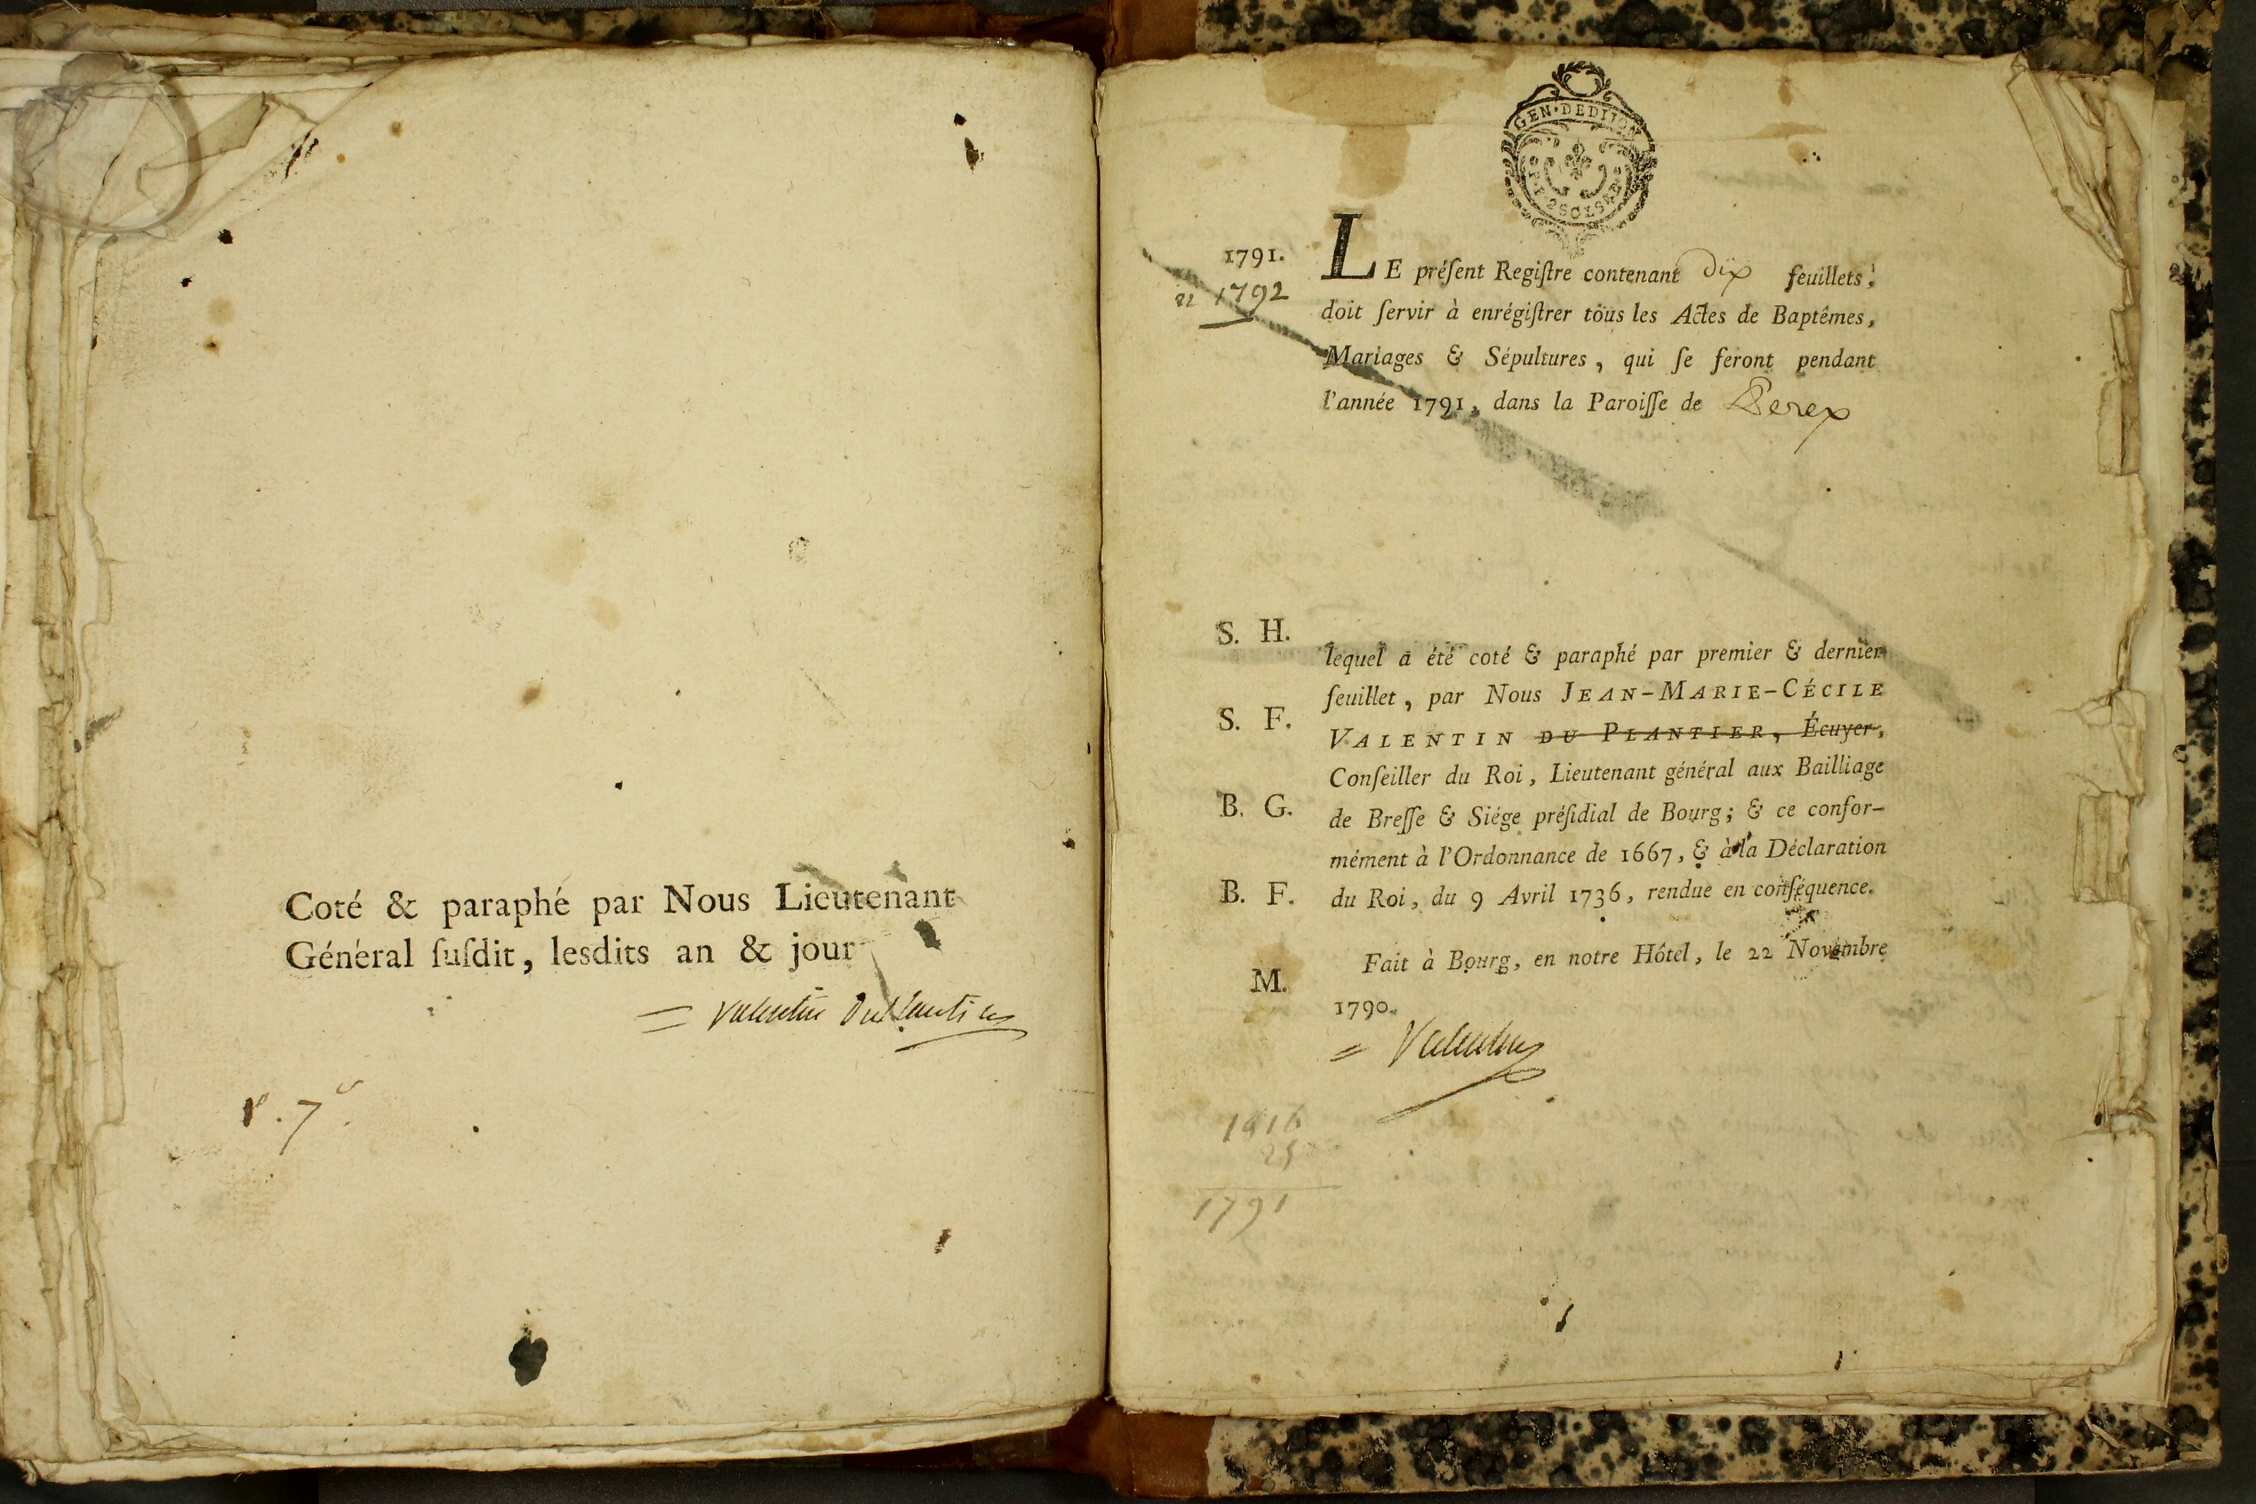 Coté & paraphé par Nous Lieutenant
Général ſuſdit, lesdits an & jour
= Valentin Duplantier
GEN·DEDIJON
1791.
1792
LE préſent Regiſtre contenant dix feuillets,
doit ſervir à enrégiſtrer tous les Actes de Baptêmes,
Mariages & Sépultures, qui ſe feront pendant
l'année 1791, dans la Paroiſſe de Perex
S. H.
lequel a été coté & paraphé par premier & dernier
feuillet, par Nous JEAN-MARIE-CÉCILE
S. F.
VALENTIN DU PLANTIER, Écuyer,
Conſeiller du Roi, Lieutenant général aux Bailliage
B. G.
de Breſſe & Siége préſidial de Bourg; & ce confor-
mément à l'Ordonnance de 1667, & à la Déclaration
B. F.
du Roi, du 9 Avril 1736, rendue en conſéquence.
Fait à Bourg, en notre Hôtel, le 22 Novembre
M.
1790.
= Valentin
1791